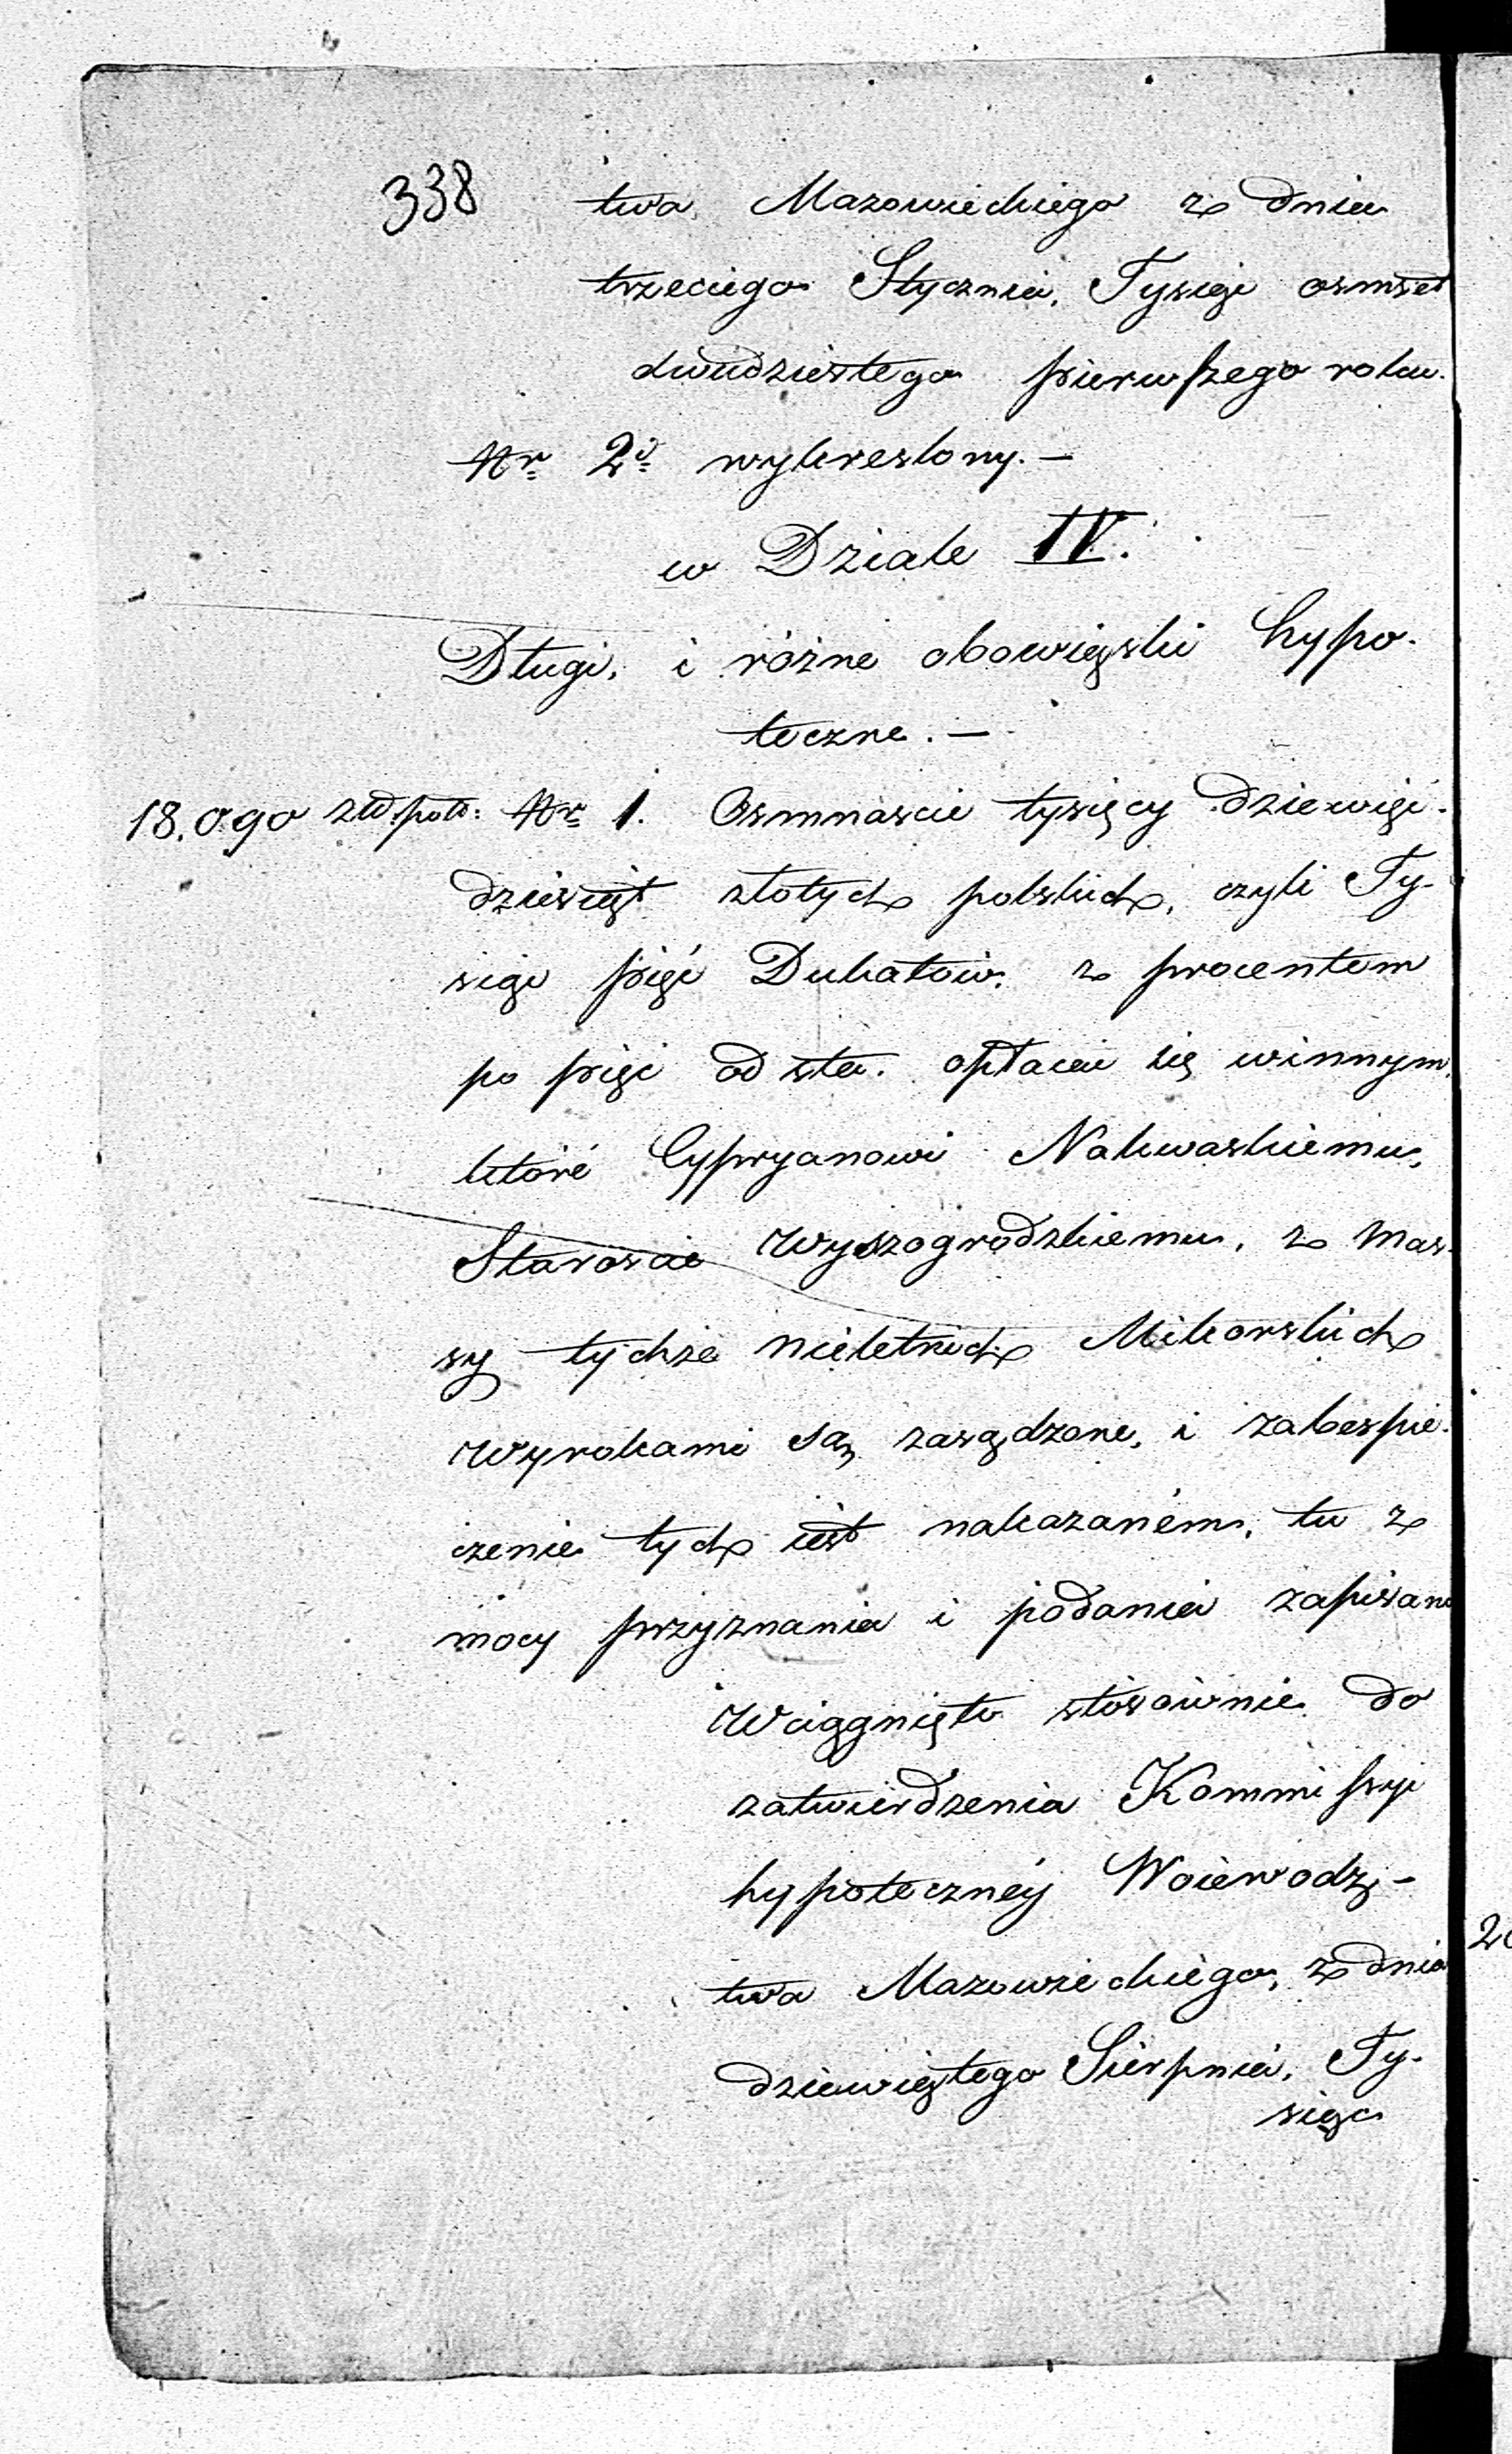 338
twa Mazowieckiego z dnia
trzeciego Stycznia, Tysiąc osmset
dwudziestego pierwszego roku.
Nr 2i wykreslony. —
w Dziale IV.
Długi, i różne obowiązki hypo-
teczne. —
18,090 złł. pols: Nr 1. Osmnascie tysięcy dziewięć-
dziesiąt złotych polskich, czyli Ty-
siąc pięć Dukatów, z procentem
po pięć od sta. opłacać się winnym,
któré Cypryanowi Nakwaskiemu,
Staroscie Wyszogrodzkiemu, z mas-
sy tychże nieletnich Mikorskich
Wyrokami są zasądzone, i zabespie-
czenie tych iest nakazaném, tu z
mocy przyznania i podania zapisano
Wciągnięto stósównie do
zatwierdzenia Kommissyi
hypotecznéy Woiewodz-
twa Mazowieckiégo, z dnia
dziewiątego Sierpnia, Ty-
siąc